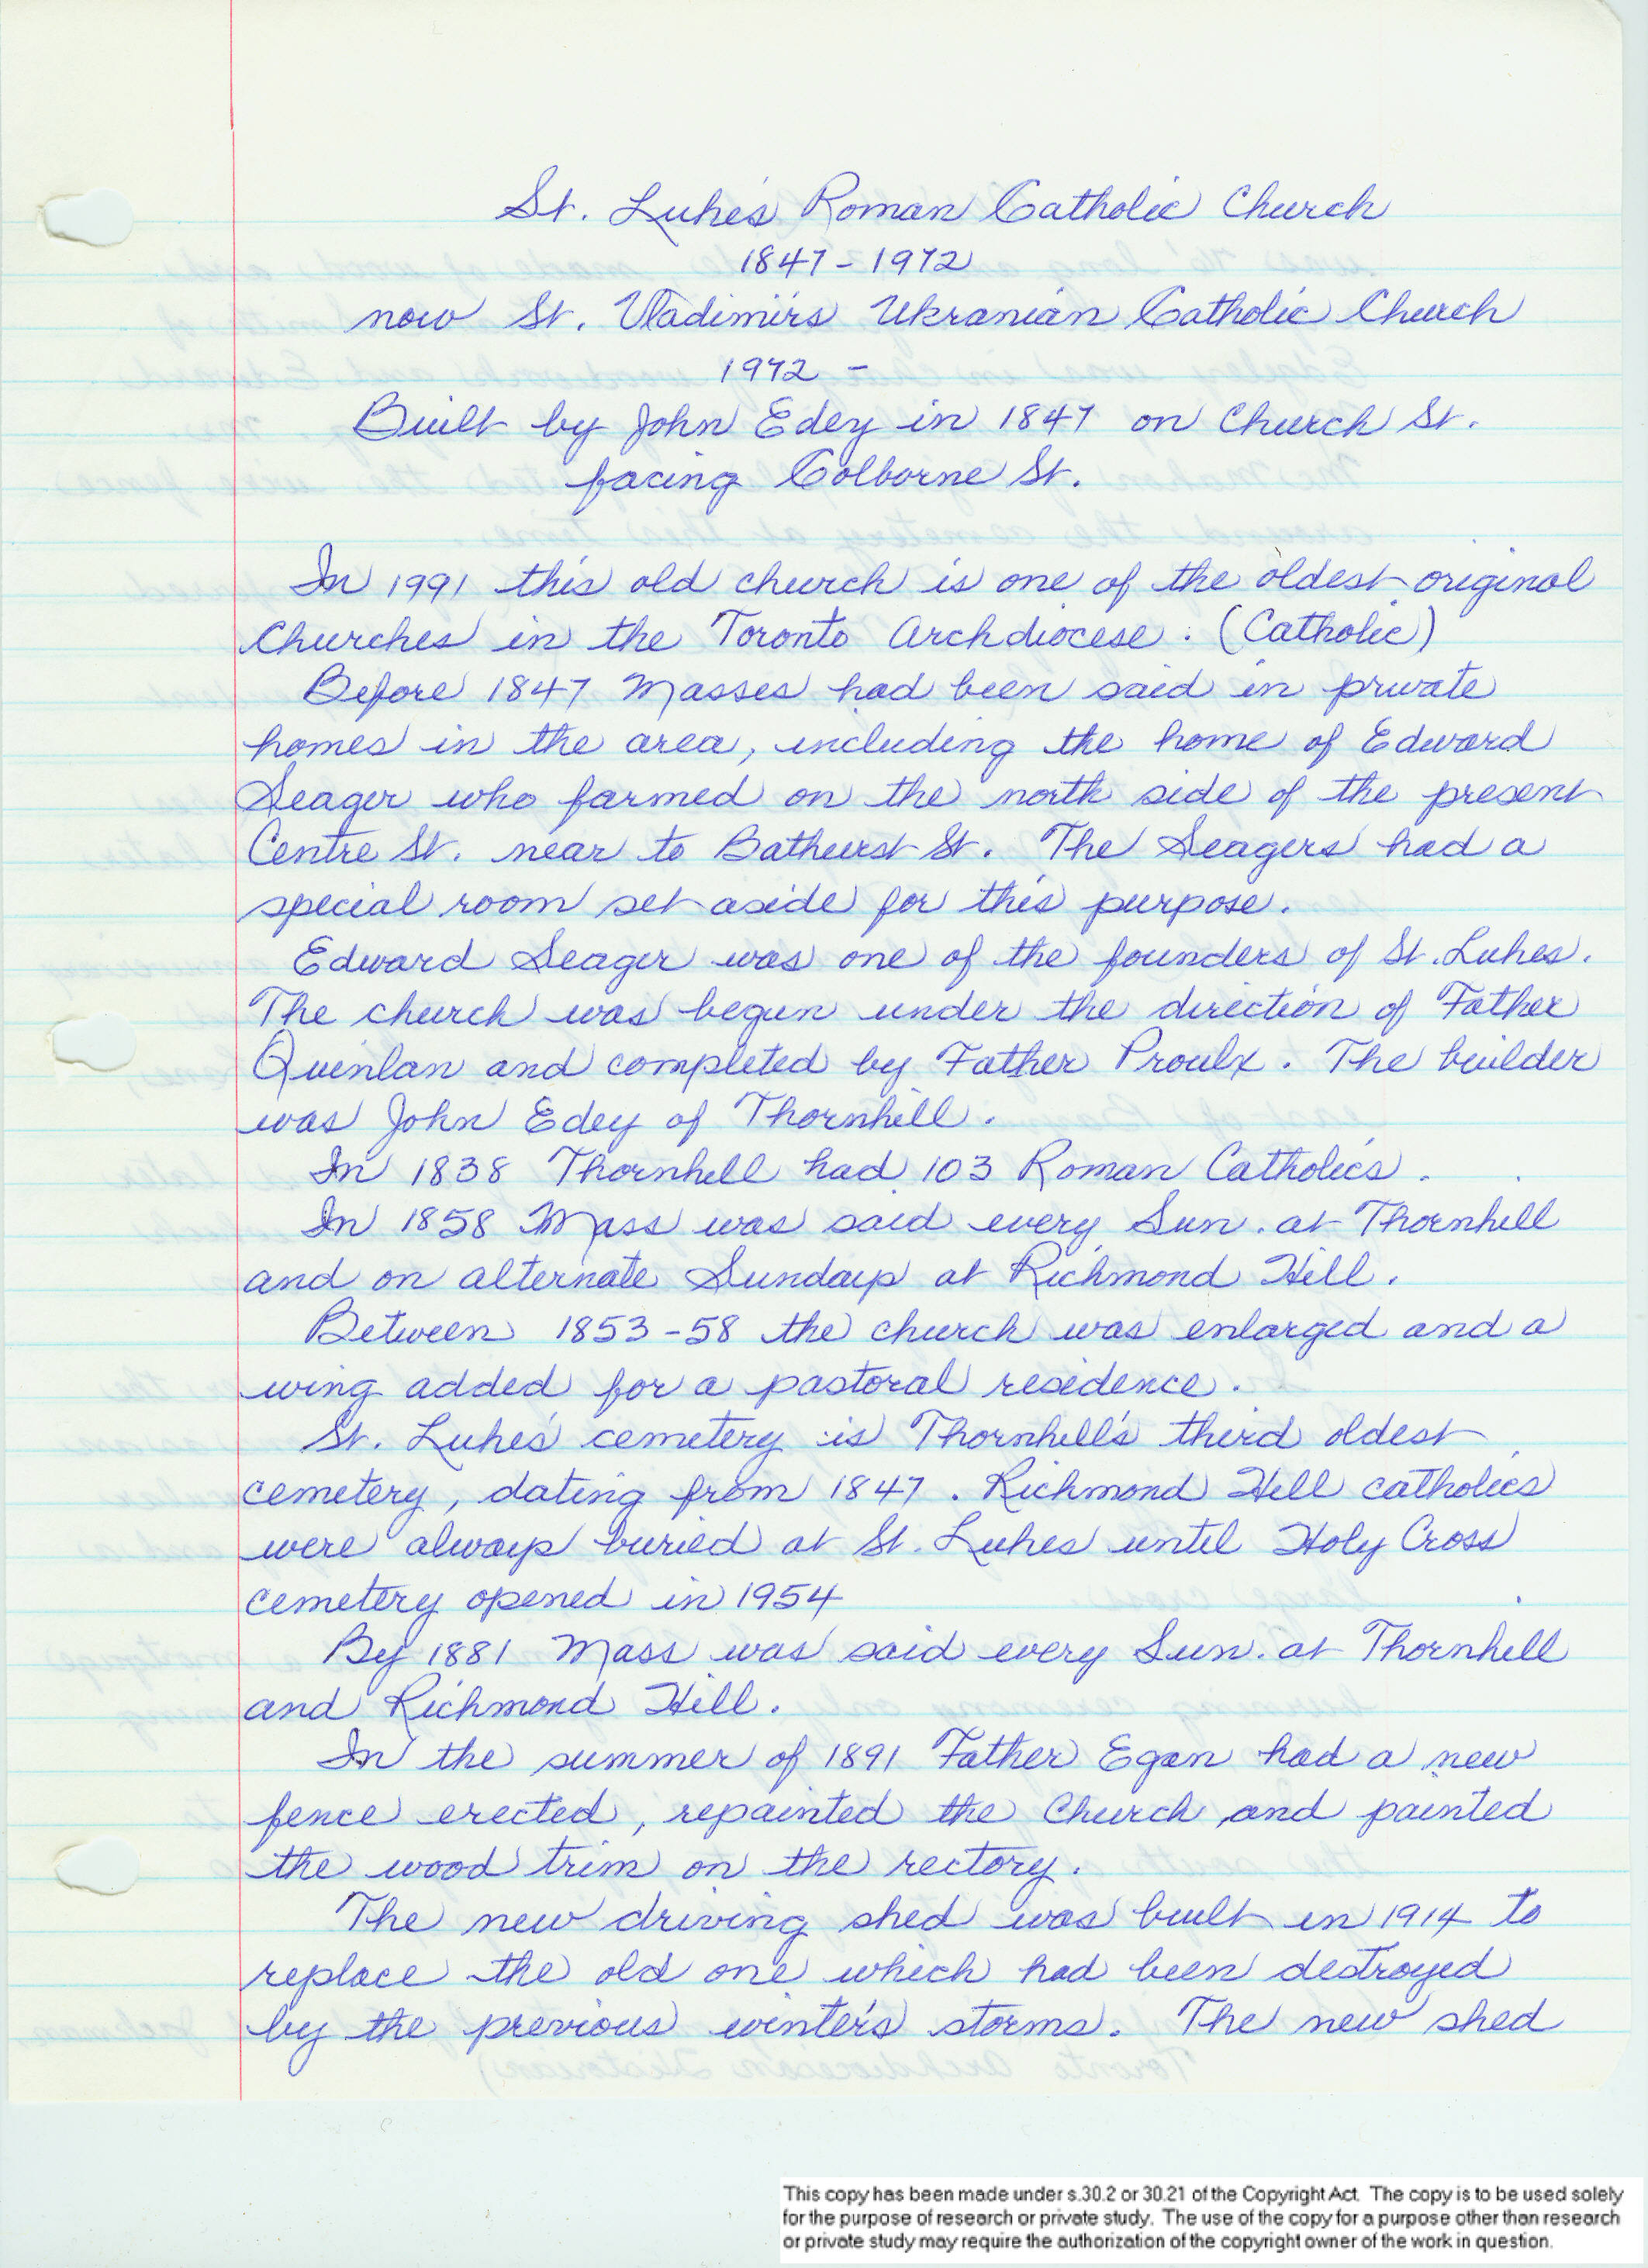 St. Luke's Roman Catholic Church
1847 - 1972
now St. Vladimir's Ukranian Catholic Church
1972 -
Built by John Edey in 1847 on Church St.
facing Colborne St.
In 1991 this old church is one of the oldest original
Churches in the Toronto Archdiocese. (Catholic)
Before 1847 Masses had been said in private
homes in the area, including the home of Edward
Seager who farmed on the north side of the present
Centre St. near to Bathurst St. The Seagers had a
special room set aside for this purpose.
Edward Seager was one of the founders of St. Lukes.
The church was begun under the direction of Father
Quinlan and completed by Father Proulx. The builder
was John Edey of Thornhill.
In 1838 Thornhill had 103 Roman Catholics.
In 1858 Mass was said every Sun. at Thornhill
and on alternate Sundays at Richmond Hill.
Between 1853-58 the church was enlarged and a
wing added for a pastoral residence.
St. Luke's cemetery is Thornhill's third oldest
cemetery, dating from 1847. Richmond Hill catholics
were always buried at St. Lukes until Holy Cross
cemetery opened in 1954
By 1881 Mass was said every Sun. at Thornhill
and Richmond Hill.
In the summer of 1891 Father Egan had a new
fence erected, repainted the Church and painted
the wood trim on the rectory.
The new driving shed was built in 1914 to
replace the old one which had been destroyed
by the previous winter's storms. The new shed
This copy has been made under s.30.2 or 30.21 of the Copyright Act. The copy is to be used solely
for the purpose of research or private study. The use of the copy for a purpose other than research
or private study may require the authorization of the copyright owner of the work in question.